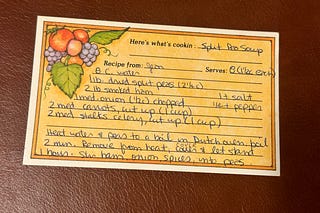 Here's what's cookin: Split Pea Soup
Recipe from: Serves: 8 (1½c each)
8 C. water
1 lb. dried split peas (2¼c)
2 lb smoked ham
1 med. onion (½c) chopped 1 t salt
2 med. carrots, cut up (1 cup) ¼ t pepper
2 med stalks celery, cut up (1 cup)
Heat water & peas to a boil in Dutch oven, boil
2 min. Remove from heat, & let stand
1 hour. Stir ham, onion spices, into peas